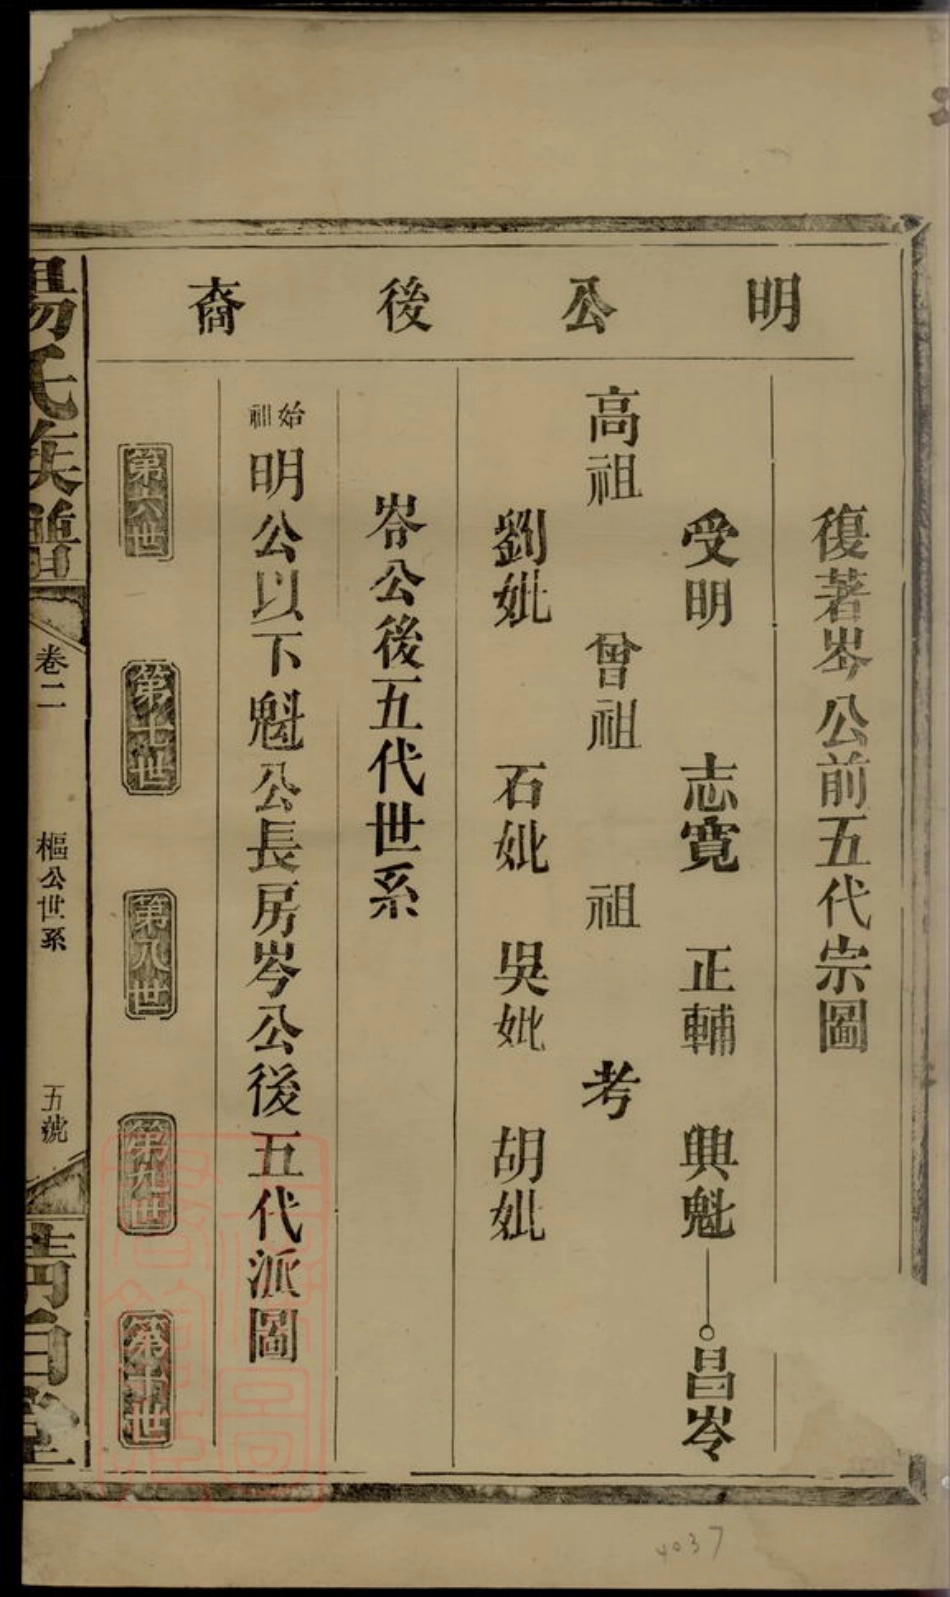 明公後裔
復著岑公前五代宗圖
受明 志寬 正輔 興魁 昌岑
高祖 曾祖 祖 考
劉妣 石妣 吳妣 胡妣
岑公後五代世系
始祖明公以下魁公長房岑公後五代派圖
第六世 第七世 第八世 第九世 第十世
楊氏族譜 卷二 樞公世系 五號 清白堂
4037